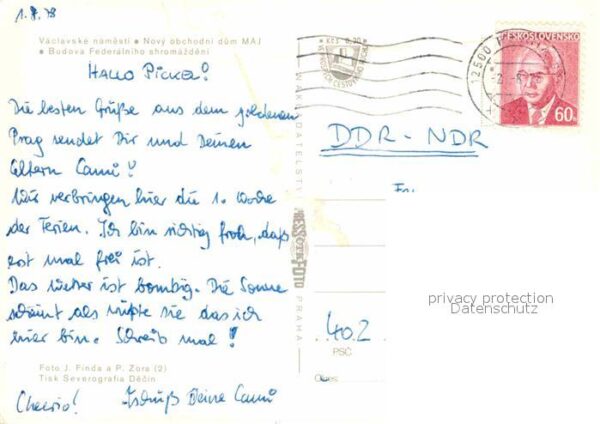 1.8.78
Václavské náměstí • Nový obchodní dům MÁJ
• Budova Federálního shromáždění
HALLO PICKEL!
Die besten Grüße aus dem goldenen
Prag sendet Dir und Deinen
Eltern Camü!
Wir verbringen hier die 1. Woche
der Ferien. Ich bin richtig froh, daß
erst mal frei ist.
Das Wetter ist bombig. Die Sonne
scheint als wüßte sie das ich
hier bin. Schreib mal!
Foto J. Finda a P. Zora (2)
Tisk Severografia Děčín
Cheerio! Deine Camü
Kčs 0,30
NAKLADATELSTVÍ
PRESSFOTO
PRAHA
ČESKOSLOVENSKO
60h
DDR - NDR
Fr.
privacy protection
Datenschutz
402
PSČ
Okres